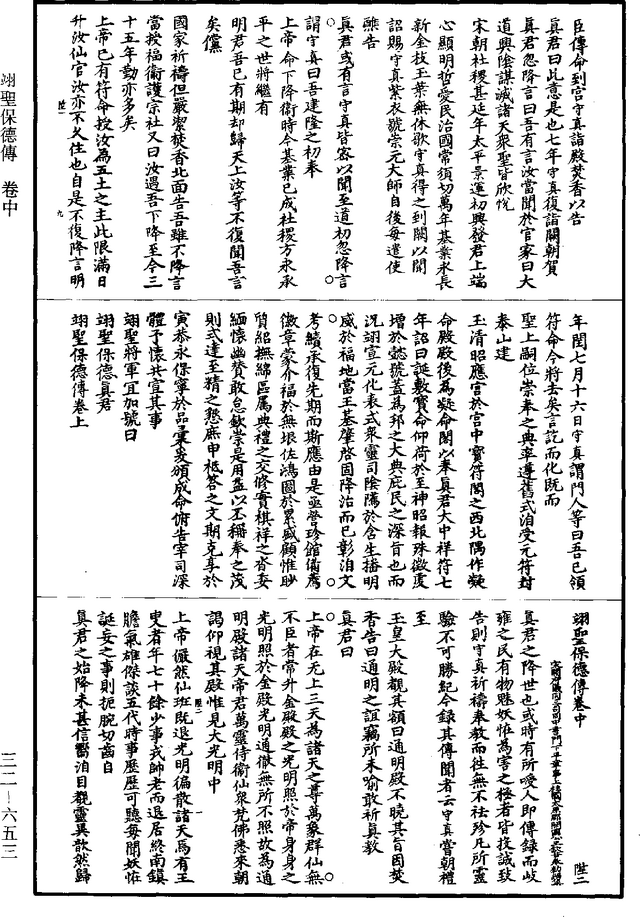 臣傳命到宮守真詣殿焚香以告
真君曰此意是也七年守真復詣闕朝賀
真君忽降言曰吾有言汝當聞於官家曰大
道興陰謀滅諸天衆聖皆欣悅
宋朝社稷甚延年太平景運初興發君上端
心顯明哲愛民治國常須切萬年基業永長
新金枝玉葉無休歇守真得之到闕以聞
詔賜守真紫衣號崇元大師自後每遣使
醮告
真君或有言守真皆密以聞至道初忽降言
謂守真曰吾建隆之初奉
上帝命下降衛時今基業已成社稷方永承
平之世將繼有
明君吾已有期却歸天上汝等不復聞吾言
矣儻
國家祈禱但嚴潔焚香北面告吾雖不降言
當授福衞護宗社又曰汝遇吾下降至今三
十五年勤亦多矣
上帝已有符命授汝為五土之主此限滿日
升汝仙官汝亦不久住也自是不復降言明
翊聖保德傳 卷中
陛一 九
年閏七月十六日守真謂門人等曰吾已領
符命今將去矣言訖而化既而
聖上嗣位崇奉之典率遵舊式洎受元符封
泰山建
玉清昭應宮於宮中寶符閣之西北隅作凝
命殿殿後為凝命閣以奉真君大中祥符七
年詔曰誕數寶命仰荷於至神昭報殊徽虔
增於懿號蓋為邦之大典庶民之深旨也而
況詡宣元化表式衆靈司陰隲於含生播明
威於福地當王基肇啓固降治而已彰洎文
考纘承復先期而斯應由是亟營珍館備薦
徽章蒙介福於無垠佐鴻圖於累盛顧惟眇
質紹撫綿區屬典禮之交修實棋祥之沓委
緬懷幽贊敢怠欽崇是用益以丕稱奉之茂
則式達至精之懇庶申祗答之文期克享於
寅恭永保寧於品彙爰頒成命俯告宰司深
體予懷共宣其事
翊聖將軍宜加號曰
翊聖保德真君
翊聖保德傳卷上
翊聖保德傳卷中
陛二
真君之降世也或時有所喫人即傳錄而岐
雍之民有物魅妖惟為害之極者皆投誠致
告則守真祈禱奉教而往無不袪殄凡所靈
驗不可勝紀今錄其傳聞者云守真嘗朝禮
至
玉皇大殿觀其額曰通明殿不曉其旨因焚
香告曰通明之誼竊所未喻敢祈真教
真君曰
上帝在无上三天為諸天之尊萬象群仙無
不臣者常升金殿殿之光明照於帝身身之
光明照於金殿光明通徹無所不照故為通
明殿諸天帝君萬靈侍衞仙衆梵佛悉來朝
謁仰視其殿惟見大光明中
上帝儼然仙班既退光明徧散諸天焉有王
叟者年七十餘少事戎帥老而退居終南鎮
膽氣雄傑談五代時事歷歷可聽每聞妖恠
誕妄之事則扼腕切齒自
真君之始降未甚信嚮洎目覩靈異歘然歸
三二—六五三